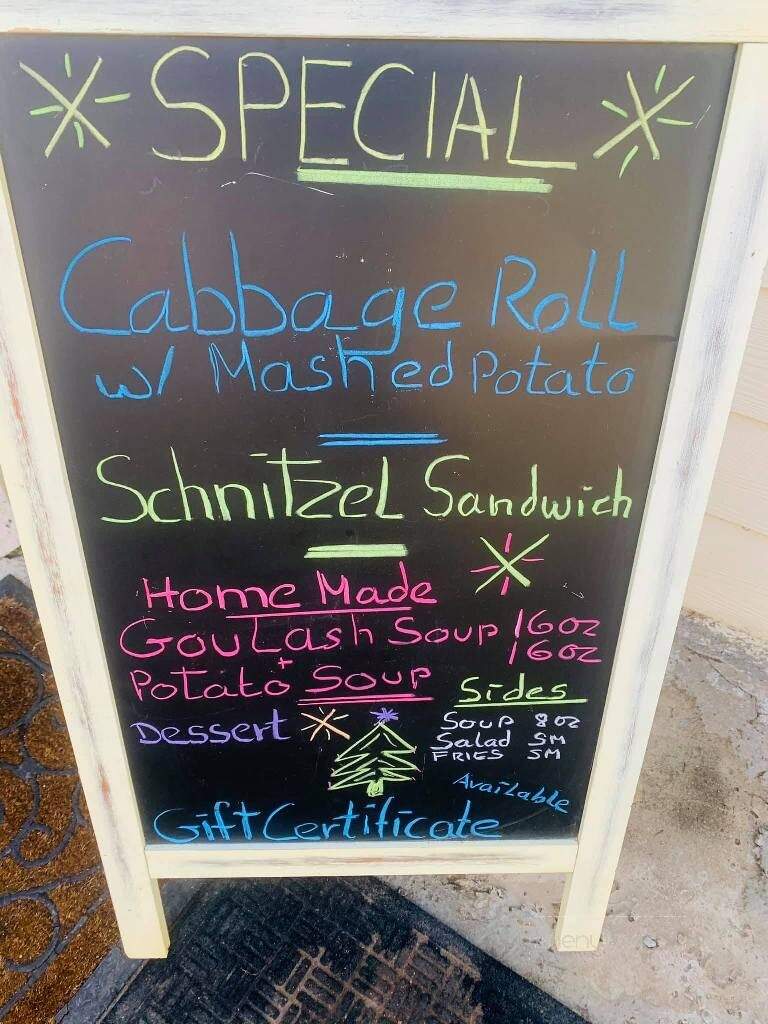 SPECIAL
Cabbage Roll
w/ Mashed Potato
Schnitzel Sandwich
Home Made
Goulash Soup 16oz
+ 16oz
Potato Soup
Sides
Dessert
Soup 8oz
Salad SM
FRIES SM
Available
Gift Certificate